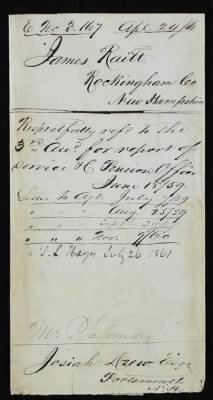 E No 3.167 Apl 24/41
James Raitt
Rockingham Co
New Hampshire
Respectfully refd to the
3rd Aud for report of
service &c Pension Office
June 18/59.
Aug. 25/59
" " " Nov. 9/60
July 26 1861
Mr Salomon
Josiah Drew Esqr
Portsmouth
N.H.